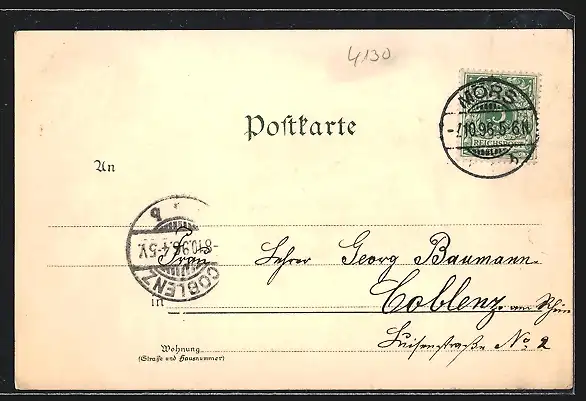 4130
MÖRS
-7.10.96.5-6N
b
5
REICHSPOST
Postkarte
An
b
-8.10.96.4-5V.
COBLENZ
Frau Lehrer Georg Baumann.
in Coblenz. am Rhein
Luisenstraße No. 2
Wohnung
(Straße und Hausnummer)